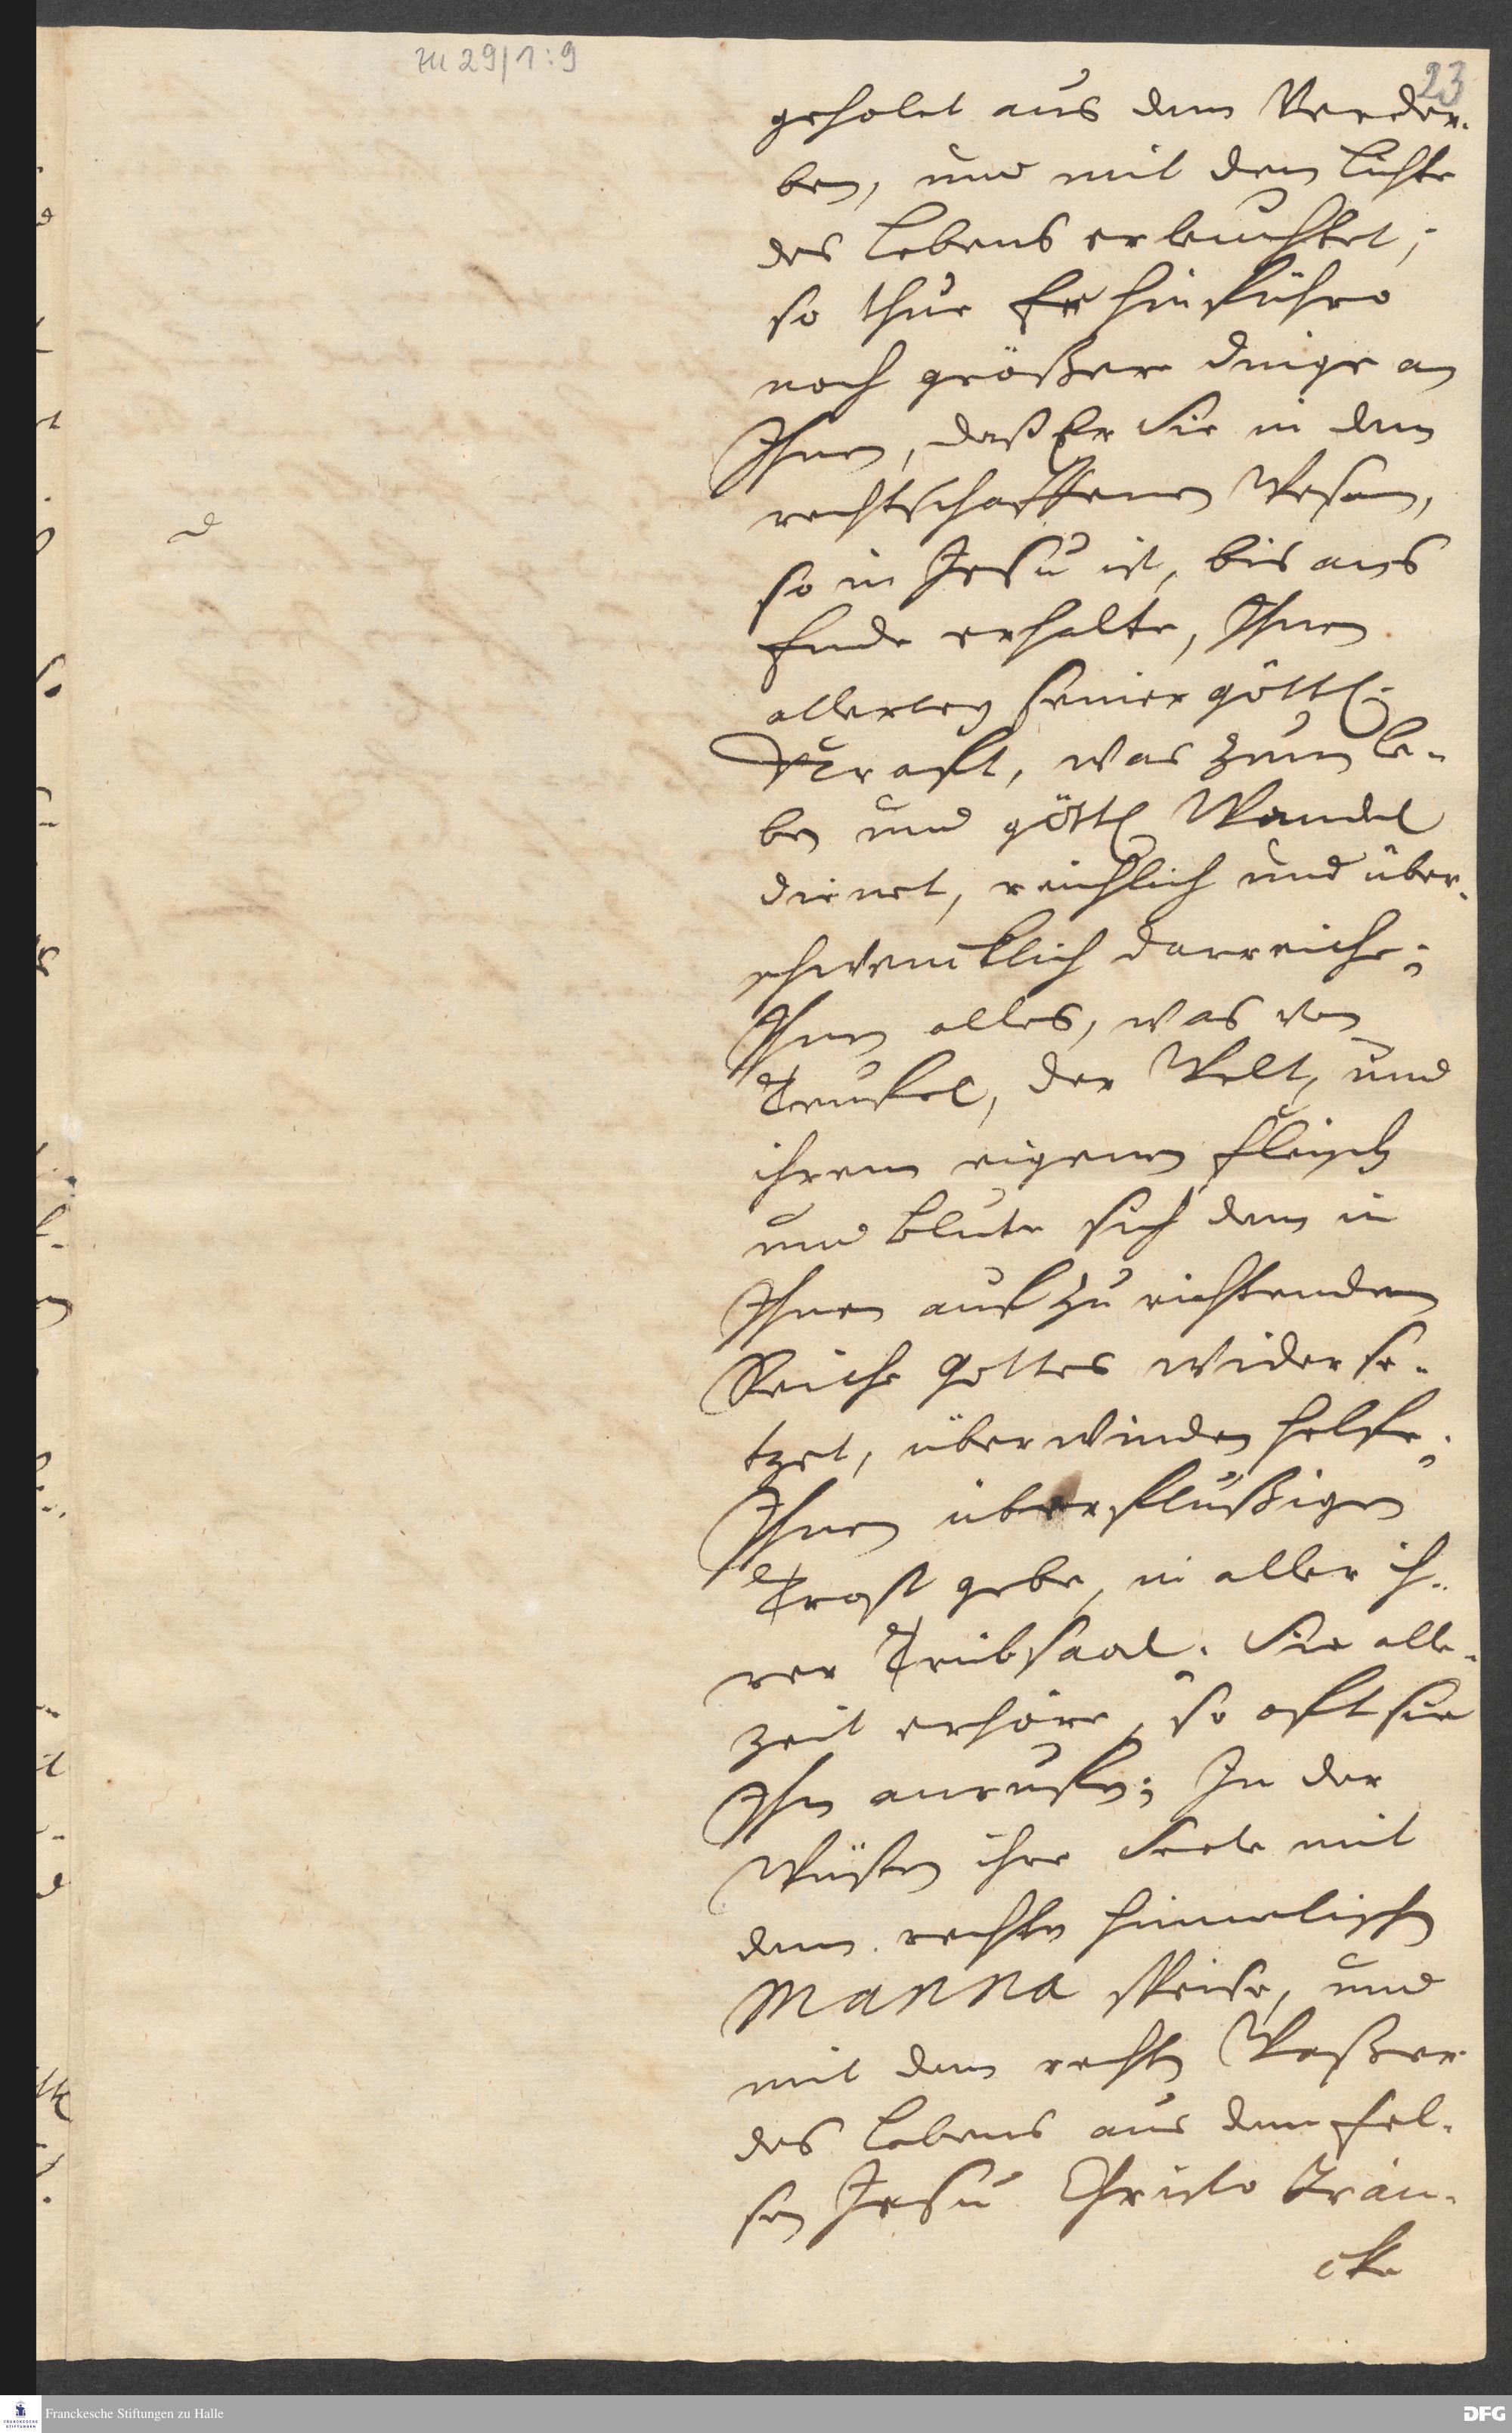 zu 29/1:9
23
geholet aus dem Verder-
ben, und mit dem Lichte
des Lebens erleuchtet;
so thue Er hinführo
noch größere Dinge an
Ihnen, daß Er Sie in dem
rechtschaffenen Wesen,
so in Jesu ist, bis ans
Ende erhalte, Ihnen
allerley seiner göttl.
Krafft, was zum Le-
ben und göttl Wandel
dienet, reichlich und über-
schwencklich darreiche;
Ihnen alles, was vom
Teufel, der Welt, und
ihrem eigenen Fleisch
und Blute sich dem in
Ihnen aufzurichtenden
Reiche Gottes widerse-
tzet, überwinden helfe;
Ihnen überflüßigen
Trost gebe, in aller ih-
rer Trübsaal. Sie alle-
zeit erhöre, so oft sie
Ihn anrufen; In der
Wüsten ihre Seele mit
dem rechten himmlischen
Manna speise, und
mit dem rechten Waßer
des Lebens aus dem Fel-
sen Jesu Christo trän-
cke
Franckesche Stiftungen zu Halle
DFG